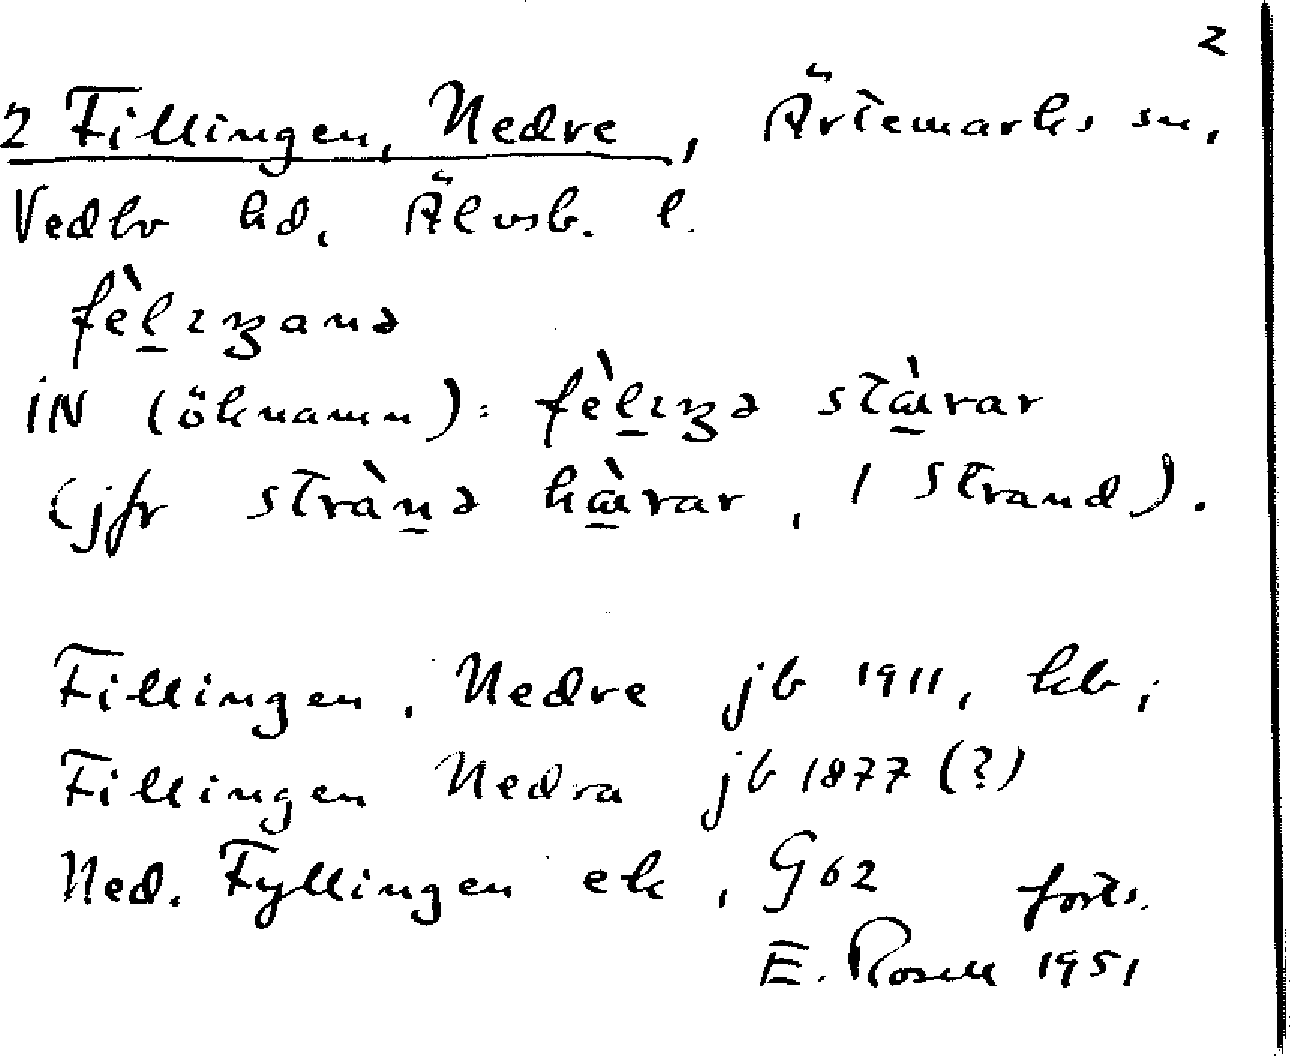 2
2 Fillingen, Nedre, Ärtemarks sn,
Vedbo hd, Älvsb. l.
fèl̲ɪŋanə
iN (öknamn): fèl̲ɪŋə stɑ̲̀rar
(jfr stràn̲ə hɑ̲̀rar, 1 Strand).
Fillingen, Nedre jb 1911, kb;
Fillingen Nedra jb 1877 (?)
Ned. Fyllingen ek, G62 forts.
E. Rosell 1951